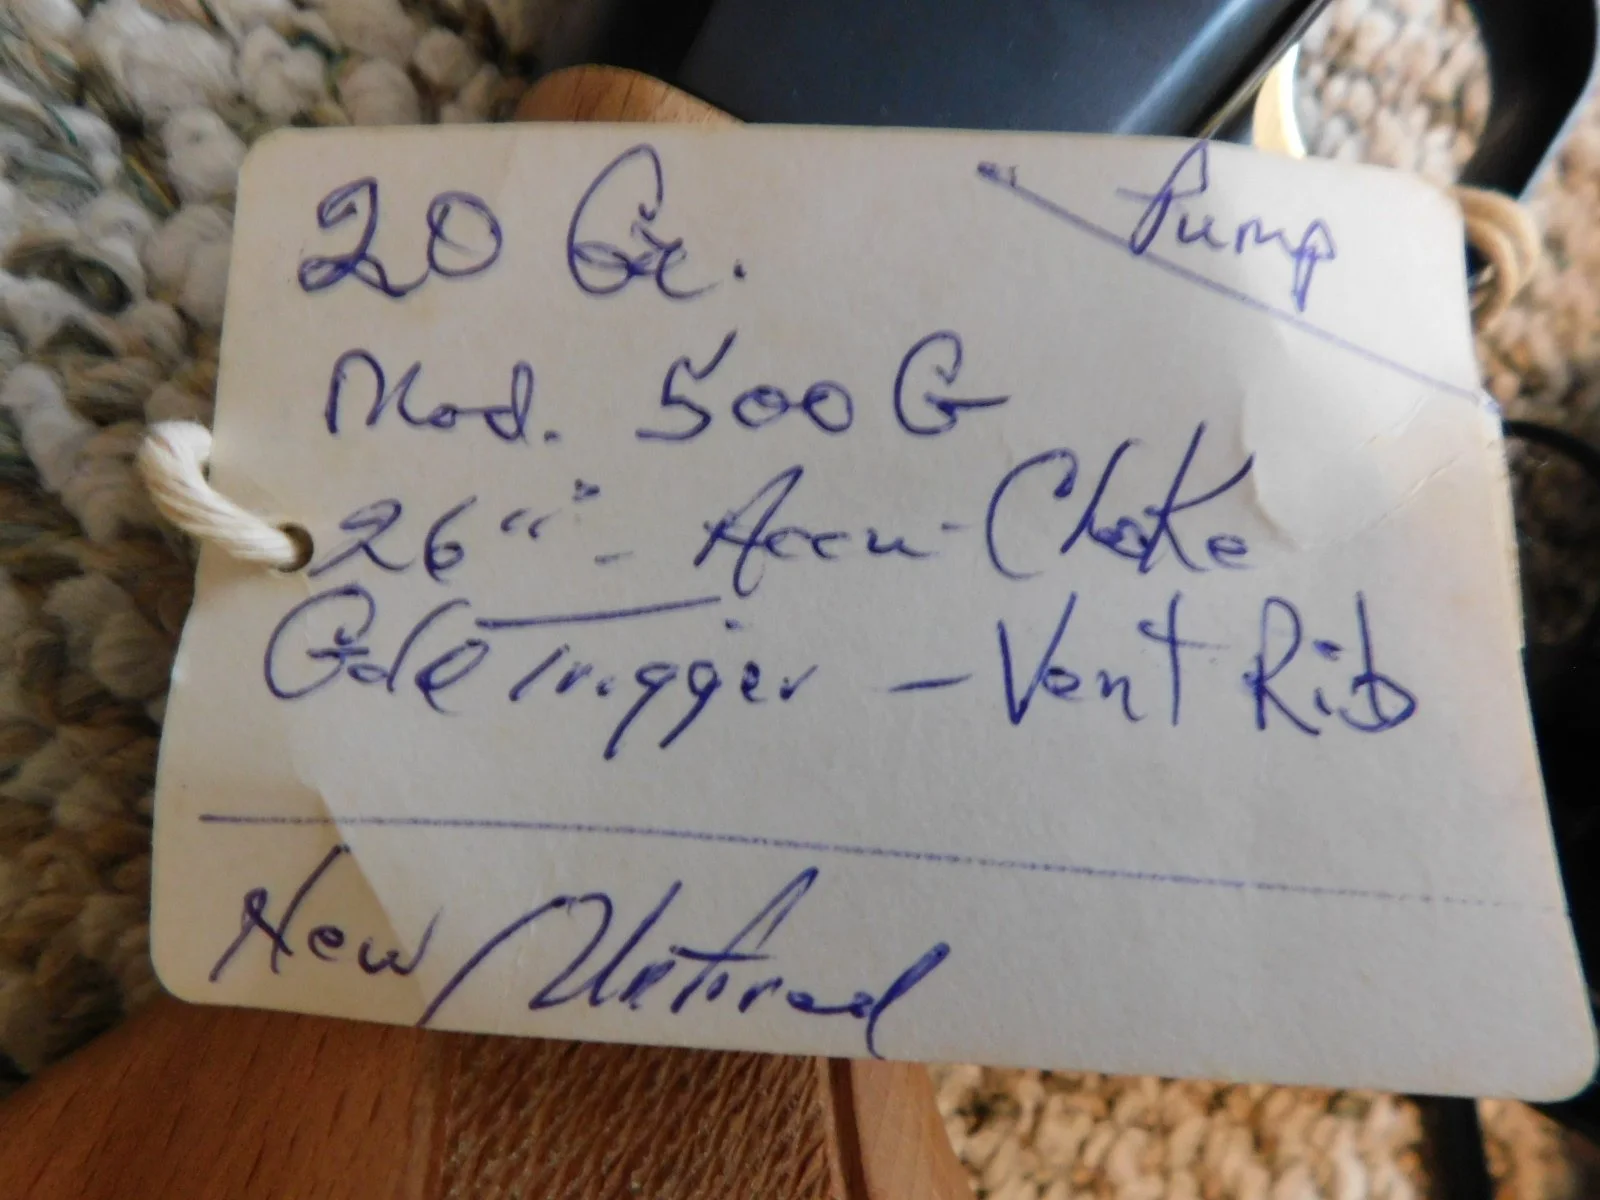 20 Ga.
Pump
Mod. 500 G
26" - Accu-Choke
Gold Trigger - Vent Rib
New / Unfired